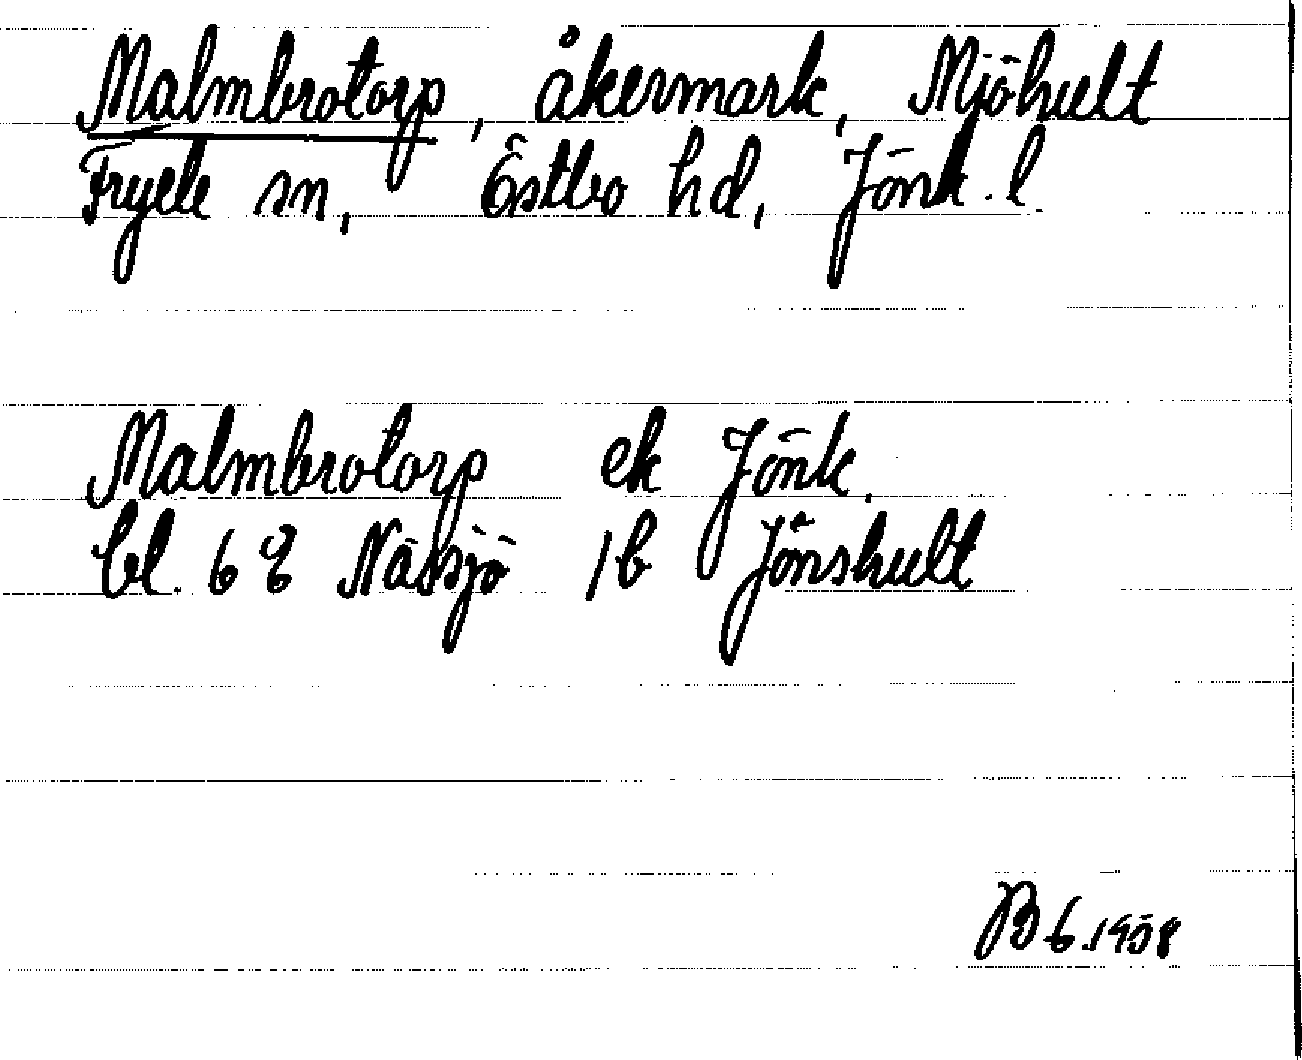 Malmbrotorp, åkermark, Mjöhult
Fryele sn, Östbo hd, Jönk. l.
Malmbrotorp ek Jönk.
bl. 6 E Nässjö 1b Jönshult
BG.1958